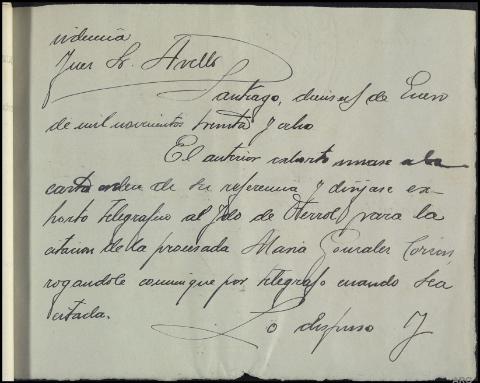 videncia
Juez Sr. Avello
Santiago, dieciseis de Enero
de mil novecientos treinta y ocho
El anterior exhorto unase a la
carta orden de su referencia y dirijase ex-
horto telegrafico al Jdo de Ferrol para la
citacion de la procesada Maria Gonzalez
rogandole comunique por telegrafo cuando sea
citada.
Lo dispuso y